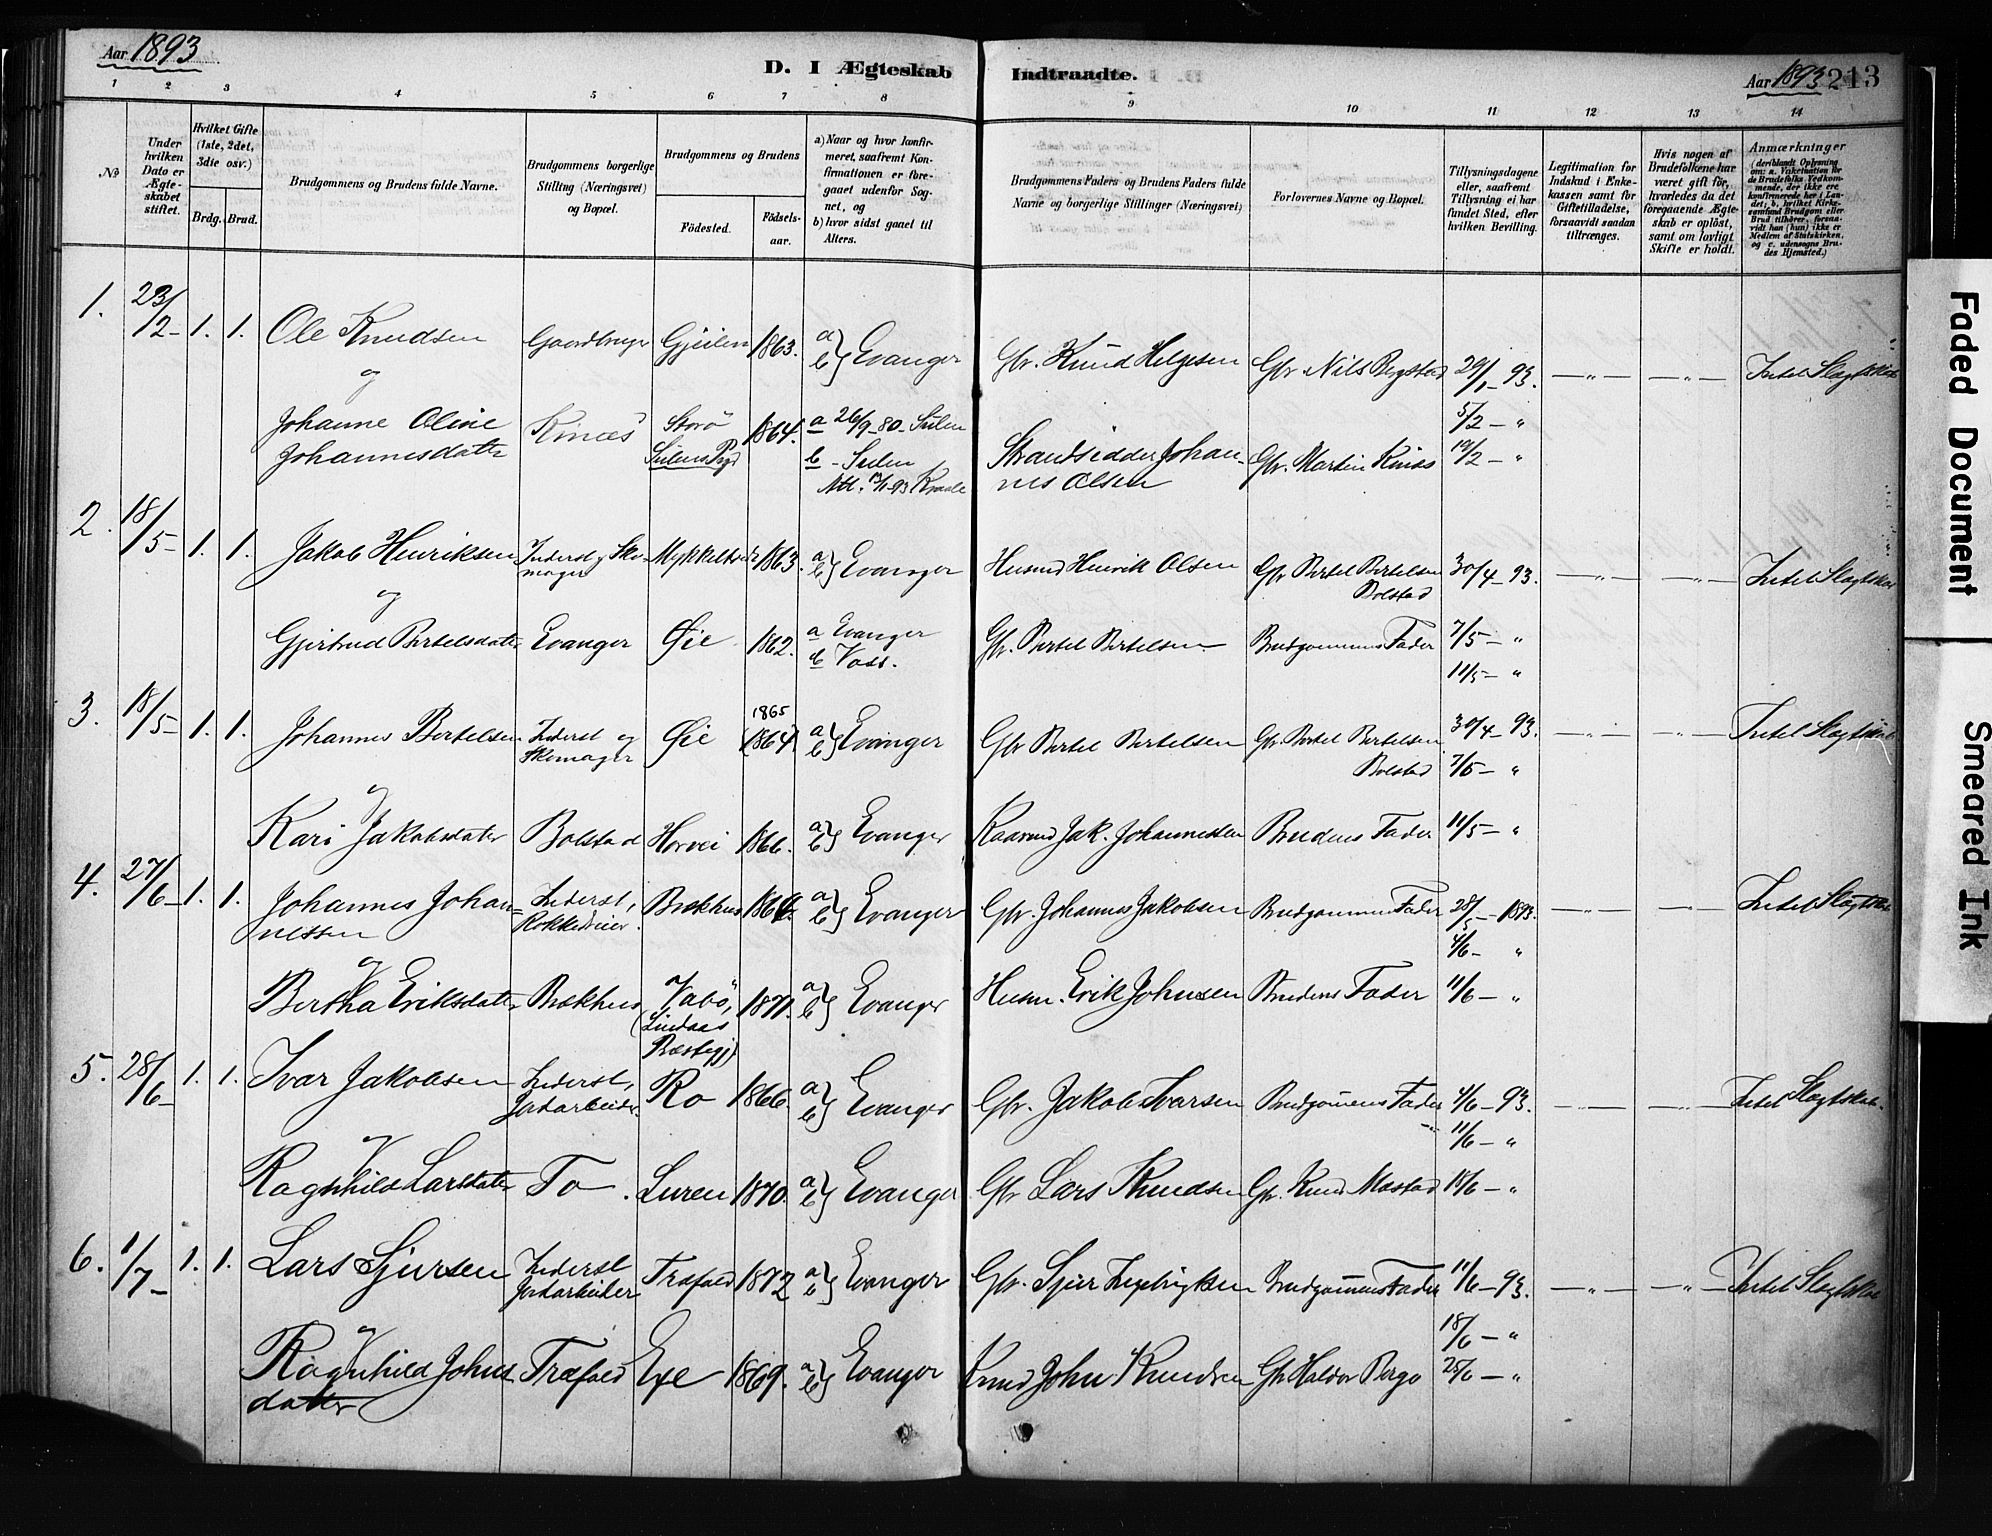 Aar 1893
D. I Ægteskab Indtraadte.
Aar 1893 213
1 2 3 4 5 6 7 8 9 10 11 12 13 14
No
Under hvilken Dato er Ægteskabet stiftet.
Hvilket Gifte (1ste, 2det, 3die osv.)
Brdg. Brud.
Brudgommens og Brudens fulde Navne.
Brudgommens borgerlige Stilling (Næringsvei) og Bopæl.
Brudgommens og Brudens
Födested. Födselsaar.
a) Naar og hvor konfirmeret, saafremt Konfirmationen er foregaaet udenför Sognet, og
b) hvor sidst gaaet til Alters.
Brudgommens Faders og Brudens Faders fulde Navne og borgerlige Stillinger (Næringsvei)
Forlovernes Navne og Bopæl.
Tillysningsdagene eller, saafremt Tillysning ei har fundet Sted, efter hvilken Bevilling.
Legitimation for Indskud i Enkekassen samt for Giftetilladelse, forsaavidt saadan tiltrænges.
Hvis nogen af Brudefolkene har været gift för, hvorledes da det foregaaende Ægteskab er oplöst, samt om lovligt Skifte er holdt.
Anmærkninger
(deriblandt Oplysning om: a. Vaksination for de Brudefolks Vedkommende, der ikke ere konfirmerede her i Landet; b. hvilket Kirkesamfund Brudgom eller Brud tilhörer, forsaavidt han (hun) ikke er Medlem af Statskirken, og c. udensogns Brudes Hjemsted.)
1. 23/2- 1. 1. Ole Knudsen Gaardbruger Gjeilen 1863. a b} Evanger Gbr. Knud Helgesen Gbr. Nils Bergstad 29/1-93. —"— —"— Intet Slægtskab
og 5/2- "
Johanne Oline Johannesdatter Kinæs Storö Sulens Pgd 1864. a 26/9-80- Sulen b - Sulen Att. 13/1-93 Strandsidder Johannes Olsen Gbr. Martin Kinæs 12/2- "
2. 18/5- 1. 1. Jakob Henriksen Inderst og Skomager 1863. a b} Evanger Husmd Henrik Olsen Gbr Bertel Bertelsen Bolstad 30/4-93. —"— —"— Intet Slægtskab
og
Gjertrud Bertelsdatter Evanger Øie 1862. a Evanger b Voss. Gbr. Bertel Bertelsen Brudgommens Fader 7/5- "
11/5- "
3. 18/5- 1. 1. Johannes Bertelsen Inderst og Skomager Øie 1865 (1864) a b} Evanger Gbr Bertel Bertelsen Gbr. Bertel Bertelsen Bolstad 30/4-93. —"— —"— Intet Slægtskab
7/5- "
og
Kari Jakobsdatter Bolstad Horvei 1866. a b} Evanger Kaarmd Jak. Johannessen Brudens Fader 11/5- "
4. 27/6- 1. 1. Johannes Johannessen Inderst, Rokkedreier. Brækhus 1866. a b} Evanger Gbr. Johannes Jakobsen Brudgommens Fader 28/5-1893. —"— —"— Intet Slægtskab
4/6- "
og
Bertha Eriksdatter Brækhus Vabö, (Lindaas Præstegj) 1871. a b} Evanger Husm. Erik Johnsen Brudens Fader 11/6- "
5. 28/6- 1. 1. Ivar Jakobsen Inderst, Jordarbeider. Ro 1866. a b} Evanger Gbr. Jakob Ivarsen Brudgomens Fader 4/6-93. —"— —"— Intet Slægtskab.
11/6- "
og
Ragnhild Larsdatter Fo. Luren 1870. a b} Evanger Gbr Lars Knudsen Gbr. Knud Mostad 18/6- "
6. 1/7- 1. 1. Lars Sjursen Inderst Jordarbeider Træfald 1872 a b} Evanger Gbr. Sjur Brudgomens Fader 11/6-93. —"— —"— Intet Slægtskab
18/6- "
og
Ragnhild Johnsdatter Træfald Exe 1869. a b} Evanger John Knudsen Gbr Haldor Bergo 25/6- "
Faded Document
Smeared Ink